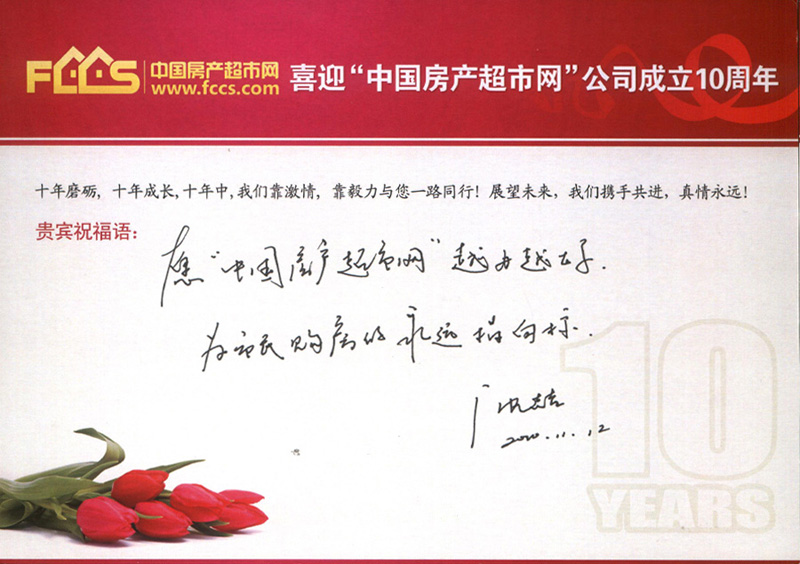 FCCS 中国房产超市网 www.fccs.com 喜迎“中国房产超市网”公司成立10周年
十年磨砺，十年成长，十年中，我们靠激情，靠毅力与您一路同行！展望未来，我们携手共进，真情永远！
贵宾祝福语：
愿“中国房产超市网”越办越好.
为市民购房的永远指向标.
2010.11.12
10
YEARS